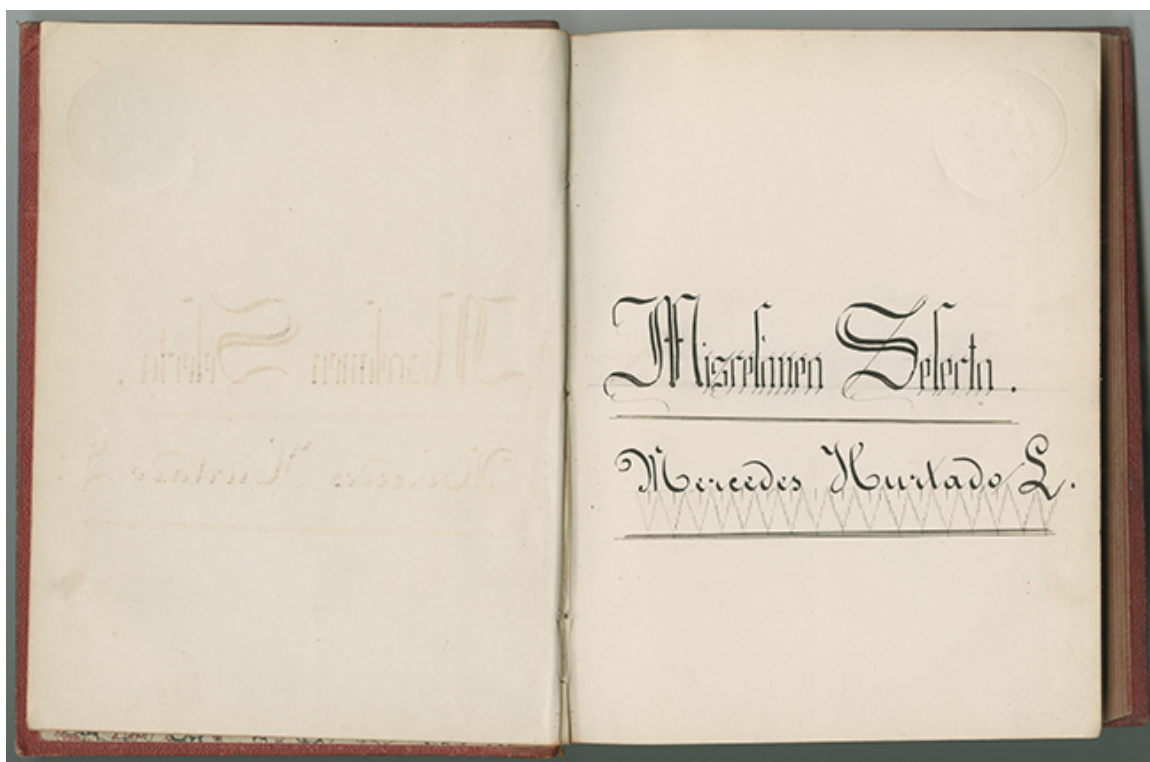 Miscelánea Selecta.
Mercedes Hurtado L.